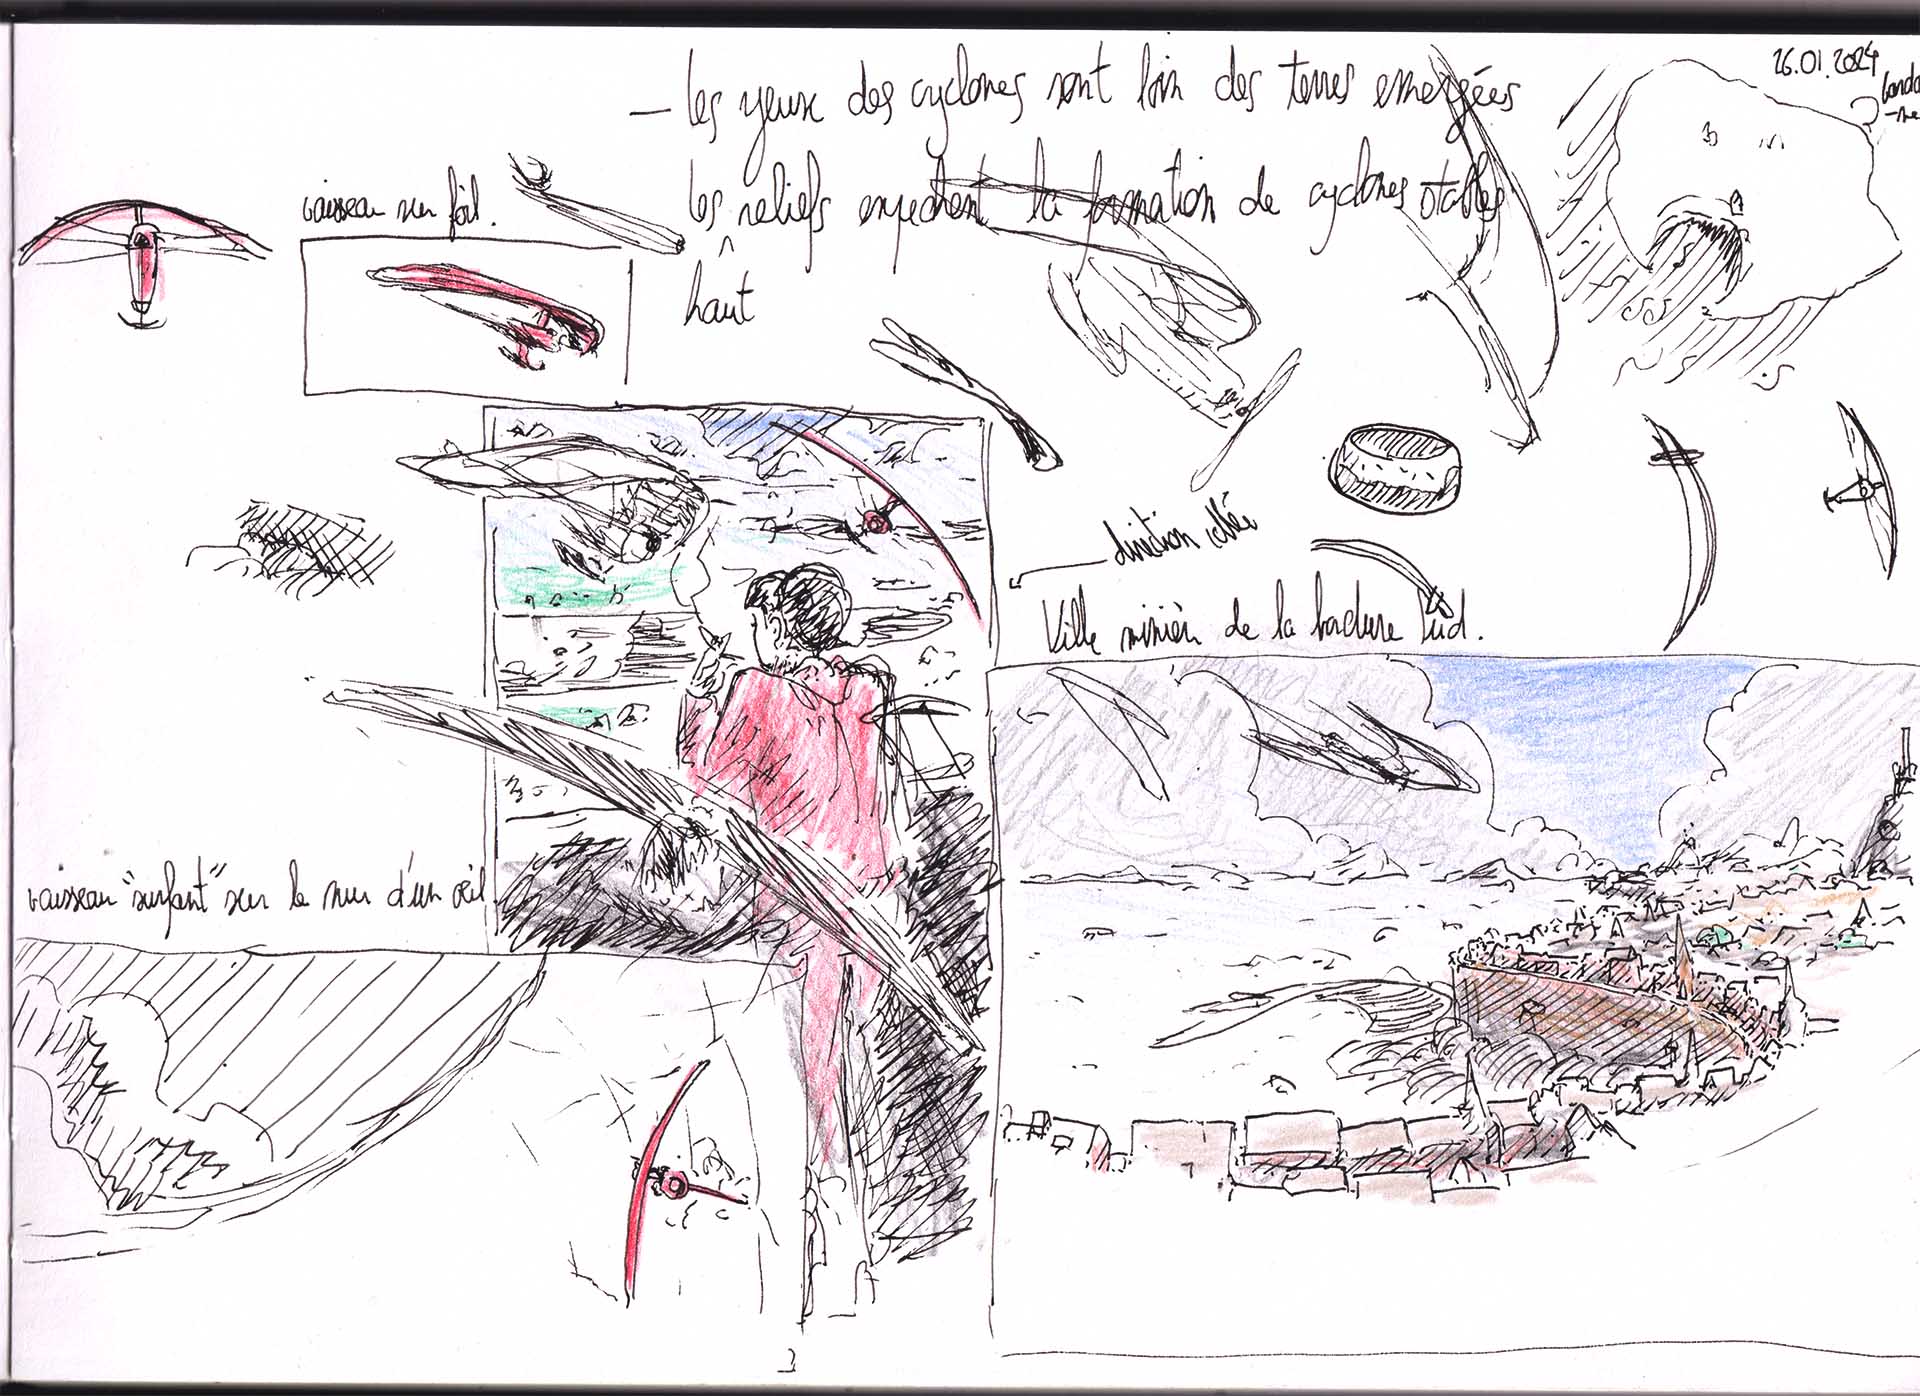 26.01.2024
— les yeux des cyclones sont loin des terres emergées
les reliefs empechent la formation de cyclones stables
haut
vaisseau sur foil.
direction
Ville minièr de la bordure Sud.
vaisseau "surfant" sur le mur d'un œil